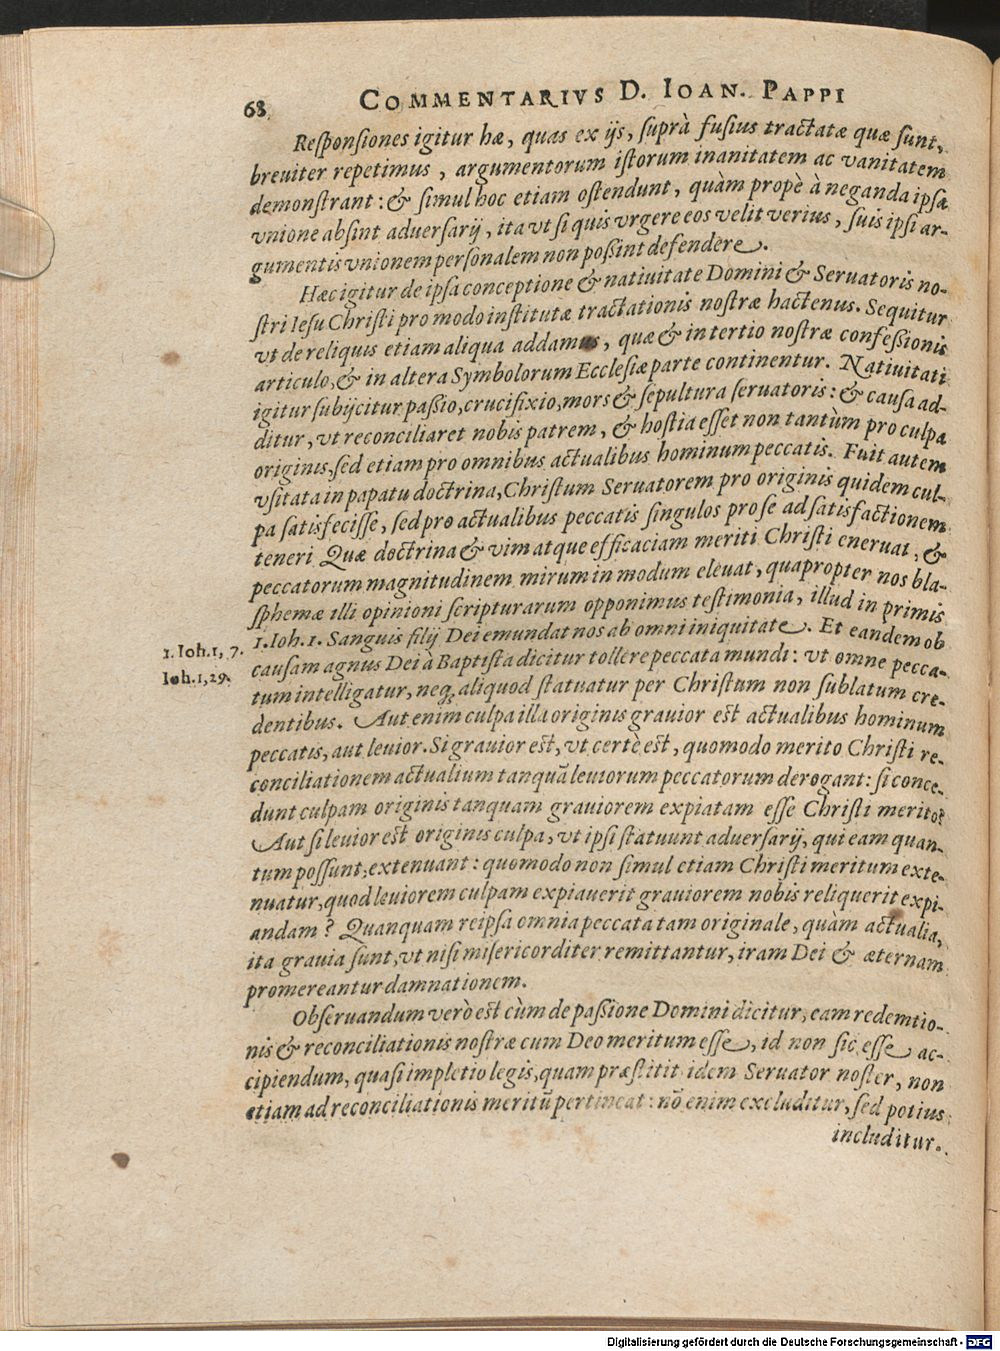 68 COMMENTARIVS D. IOAN. PAPPI
Responsiones igitur hæ, quas ex ijs, suprà fusius tractatæ quæ sunt,
breuiter repetimus, argumentorum istorum inanitatem ac vanitatem
demonstrant: & simul hoc etiam ostendunt, quàm propè à neganda ipsa
vnione absint aduersarij, ita vt si quis vrgere eos velit verius, suis ipsi ar-
gumentis vnionem personalem non poßint defendere.
Hæc igitur de ipsa conceptione & natiuitate Domini & Seruatoris no-
stri Iesu Christi pro modo institutæ tractationis nostræ hactenus. Sequitur
vt de reliquis etiam aliqua addamus, quæ & in tertio nostræ confeßionis
articulo, & in altera Symbolorum Ecclesiæ parte continentur. Natiuitati
igitur subijcitur paßio, crucifixio, mors & sepultura seruatoris: & causa ad-
ditur, vt reconciliaret nobis patrem, & hostia esset non tantùm pro culpa
originis, sed etiam pro omnibus actualibus hominum peccatis. Fuit autem
vsitata in papatu doctrina, Christum Seruatorem pro originis quidem cul-
pa satisfecisse, sed pro actualibus peccatis singulos pro se ad satisfactionem
teneri Quæ doctrina & vim atque efficaciam meriti Christi eneruat, &
peccatorum magnitudinem mirum in modum eleuat, quapropter nos bla-
sphemæ illi opinioni scripturarum opponimus testimonia, illud in primis
1. Ioh. 1. Sanguis filij Dei emundat nos ab omni iniquitate. Et eandem ob
1. Ioh. 1, 7.
causam agnus Dei à Baptista dicitur tollere peccata mundi: vt omne pecca-
Ioh. 1, 29.
tum intelligatur, neq; aliquod statuatur per Christum non sublatum cre-
dentibus. Aut enim culpa illa originis grauior est actualibus hominum
peccatis, aut leuior. Si grauior est, vt certè est, quomodo merito Christi re-
conciliationem actualium tanquā leuiorum peccatorum derogant: si conce-
dunt culpam originis tanquam grauiorem expiatam esse Christi merito?
Aut si leuior est originis culpa, vt ipsi statuunt aduersarij, qui eam quan-
tum possunt, extenuant: quomodo non simul etiam Christi meritum exte-
nuatur, quod leuiorem culpam expiauerit grauiorem nobis reliquerit expi-
andam? Quanquam reipsa omnia peccata tam originale, quàm actualia,
ita grauia sunt, vt nisi misericorditer remittantur, iram Dei & æternam
promereantur damnationem.
Obseruandum verò est cùm de paßione Domini dicitur, eam redemtio-
nis & reconciliationis nostræ cum Deo meritum esse, id non sic esse ac-
cipiendum, quasi impletio legis, quam præstitit idem Seruator noster, non
etiam ad reconciliationis meritū pertineat: nō enim excluditur, sed potius
includitur.
Digitalisierung gefördert durch die Deutsche Forschungsgemeinschaft - DFG